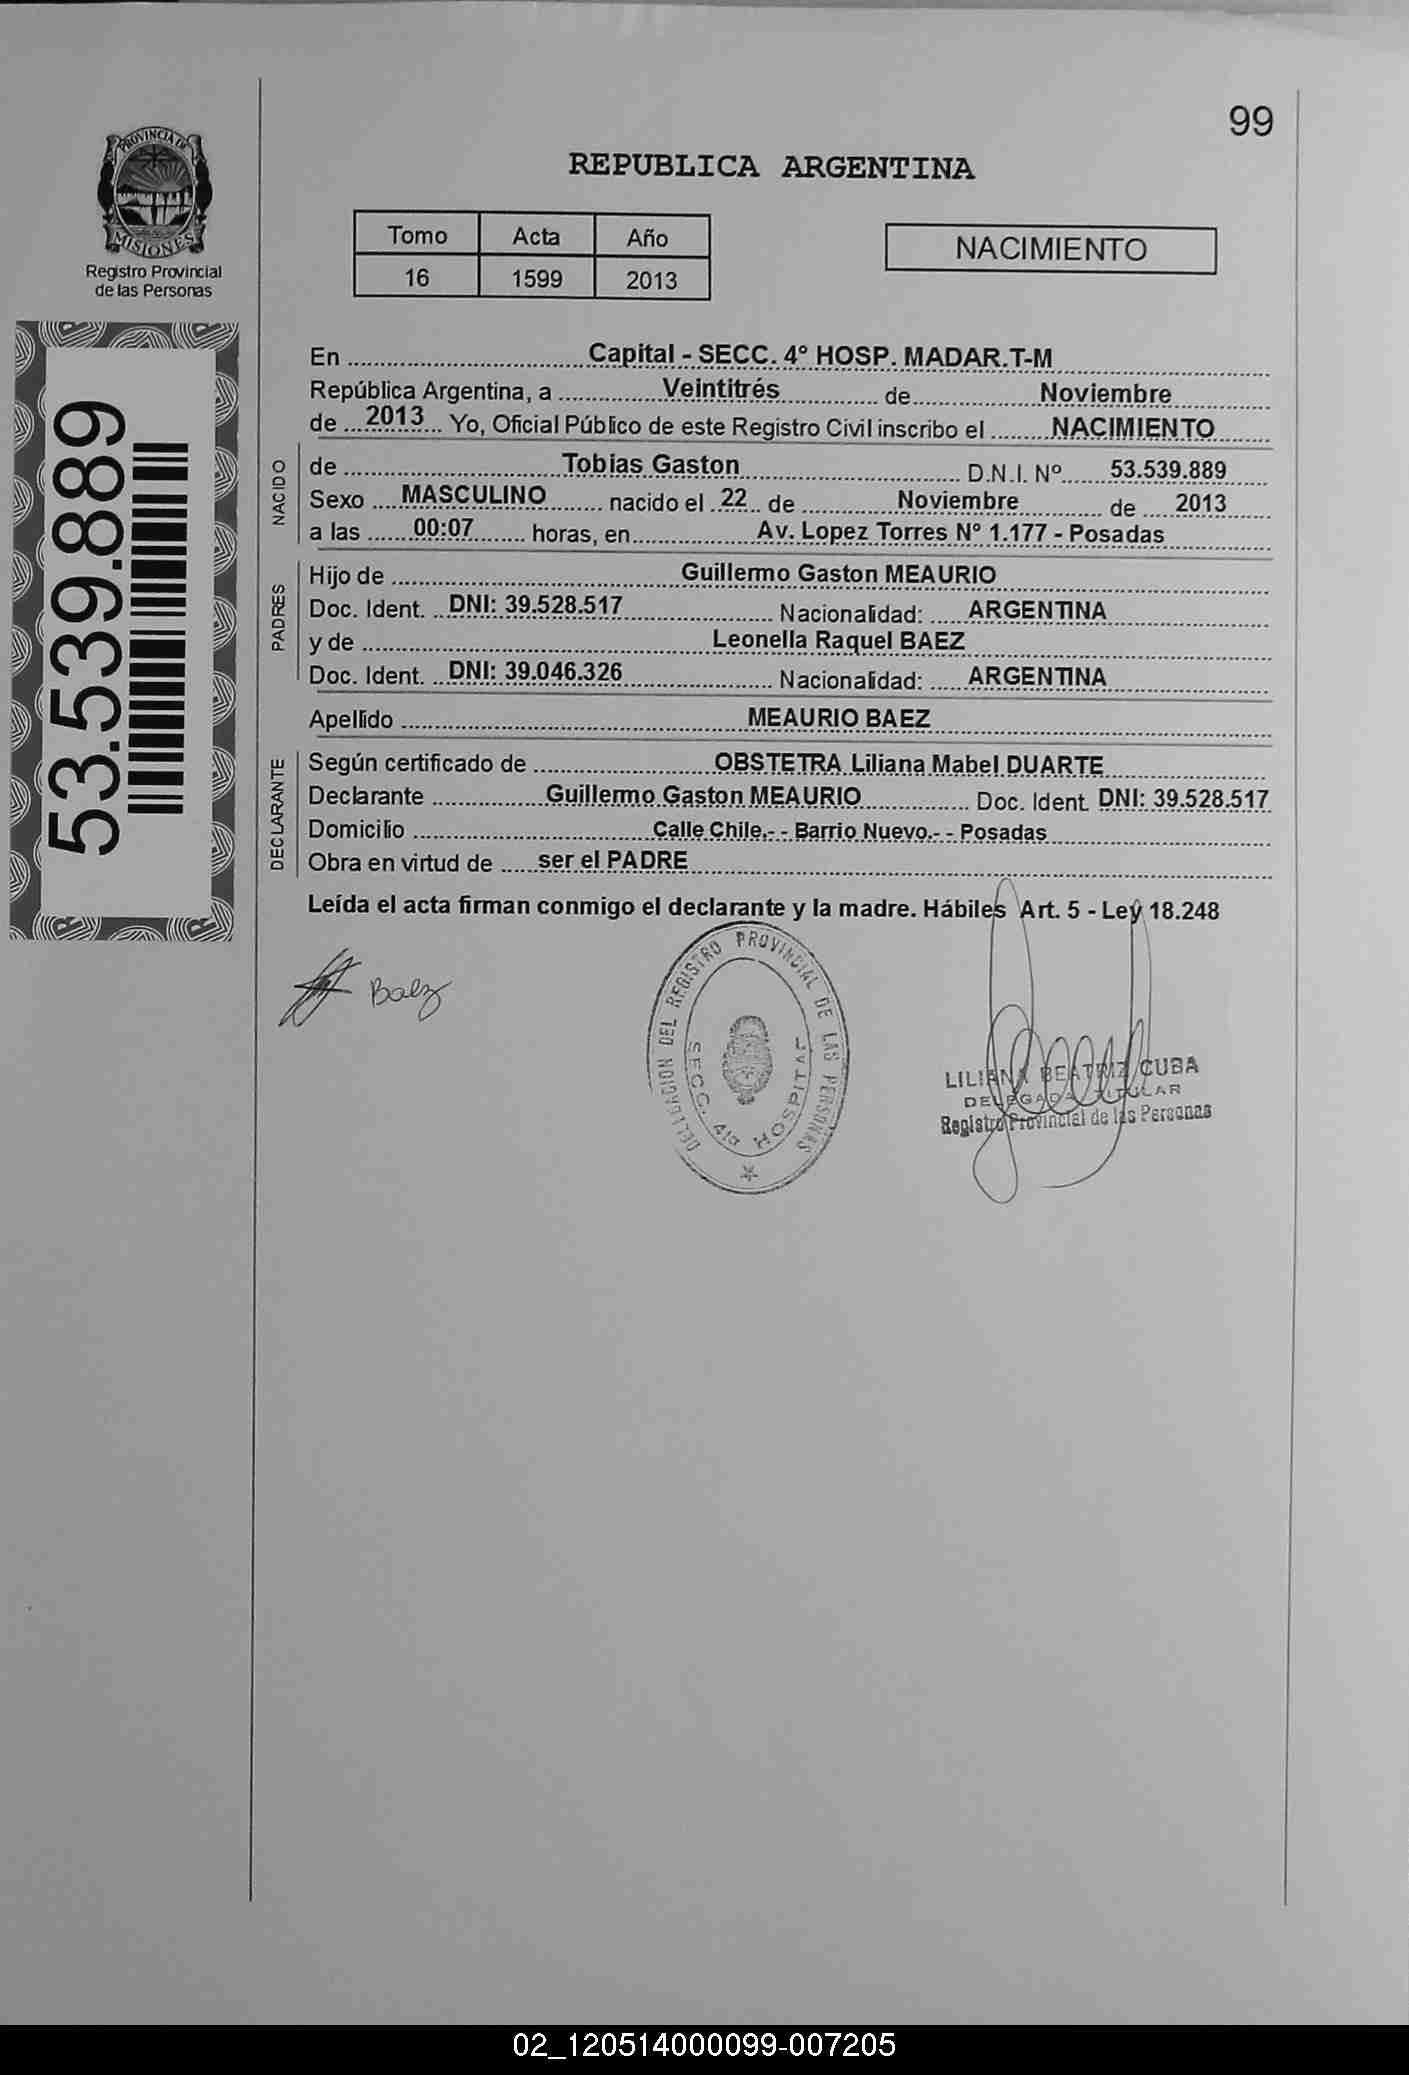 99
PROVINCIA DE
MISIONES
Registro Provincial
de las Personas
REPUBLICA ARGENTINA
Tomo Acta Año
16 1599 2013
NACIMIENTO
53.539.889
En Capital - SECC. 4° HOSP. MADAR.T-M
República Argentina, a Veintitrés de Noviembre
de 2013 Yo, Oficial Público de este Registro Civil inscribo el NACIMIENTO
NACIDO
de Tobias Gaston D.N.I. Nº 53.539.889
Sexo MASCULINO nacido el 22 de Noviembre de 2013
a las 00:07 horas, en Av. Lopez Torres Nº 1.177 - Posadas
PADRES
Hijo de Guillermo Gaston MEAURIO
Doc. Ident. DNI: 39.528.517 Nacionalidad: ARGENTINA
y de Leonella Raquel BAEZ
Doc. Ident. DNI: 39.046.326 Nacionalidad: ARGENTINA
Apellido MEAURIO BAEZ
DECLARANTE
Según certificado de OBSTETRA Liliana Mabel DUARTE
Declarante Guillermo Gaston MEAURIO Doc. Ident. DNI: 39.528.517
Domicilio Calle Chile.- - Barrio Nuevo.- - Posadas
Obra en virtud de ser el PADRE
Leída el acta firman conmigo el declarante y la madre. Hábiles Art. 5 - Ley 18.248
Baez
DELEGACION DEL REGISTRO PROVINCIAL DE LAS PERSONAS
SECC. 4ta HOSPITAL
LILIANA BEATRIZ CUBA
DELEGADA TITULAR
Registro Provincial de las Personas
02_120514000099-007205